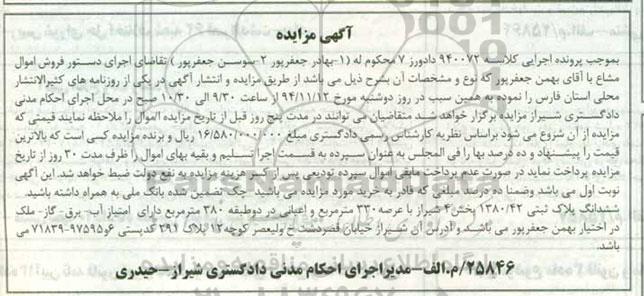 آگهی مزایده
بموجب پرونده اجرایی کلاسه ۹۴۰۰۷۲ دادورز ۷ محکوم له (۱-بهادر جعفرپور ۲-سوسن جعفرپور ) تقاضای اجرای دستور فروش اموال
مشاع با آقای بهمن جعفرپور که نوع و مشخصات آن بشرح ذیل می باشد از طریق مزایده و انتشار آگهی در یکی از روزنامه های کثیرالانتشار
محلی استان فارس را نموده به همین سبب در روز دوشنبه مورخ ۹۴/۱۱/۱۲ از ساعت ۹/۳۰ الی ۱۰/۳۰ صبح در محل اجرای احکام مدنی
دادگستری شیراز مزایده برگزار خواهد شد متقاضیان می توانند در مدت پنج روز قبل از تاریخ مزایده اموال را ملاحظه نمایند قیمتی که
مزایده از آن شروع می شود براساس نظریه کارشناس رسمی دادگستری مبلغ ۱۶/۵۸۰/۰۰۰/۰۰۰ ریال و برنده مزایده کسی است که بالاترین
قیمت را پیشنهاد و ده درصد بها را فی المجلس به عنوان سپرده به قسمت اجرا تسلیم و بقیه بهای اموال را ظرف مدت ۳۰ روز از تاریخ
مزایده پرداخت نماید در صورت عدم پرداخت مابقی اموال سپرده تودیعی پس از کسر هزینه مزایده به نفع دولت ضبط خواهد شد. این آگهی
نوبت اول می باشد وضمنا ده درصد مبلغی که قادر به خرید مورد مزایده می باشید- چک تضمین شده بانک ملی به همراه داشته باشید.
ششدانگ پلاک ثبتی ۱۳۸۰/۴۲ بخش۴ شیراز با عرصه ۳۳۰ مترمربع و اعیانی در دوطبقه ۳۸۰ مترمربع دارای امتیاز آب- برق- گاز- ملک
در اختیار بهمن جعفرپور می باشد و آدرس آن شیراز خیابان قصردشت خ ولیعصر کوچه ۱۲ پلاک ۲۹۱ کدپستی ۹۷۵۹۵۶-۷۱۸۳۹ می
باشد.
۲۵۸۴۶/م.الف-مدیراجرای احکام مدنی دادگستری شیراز-حیدری